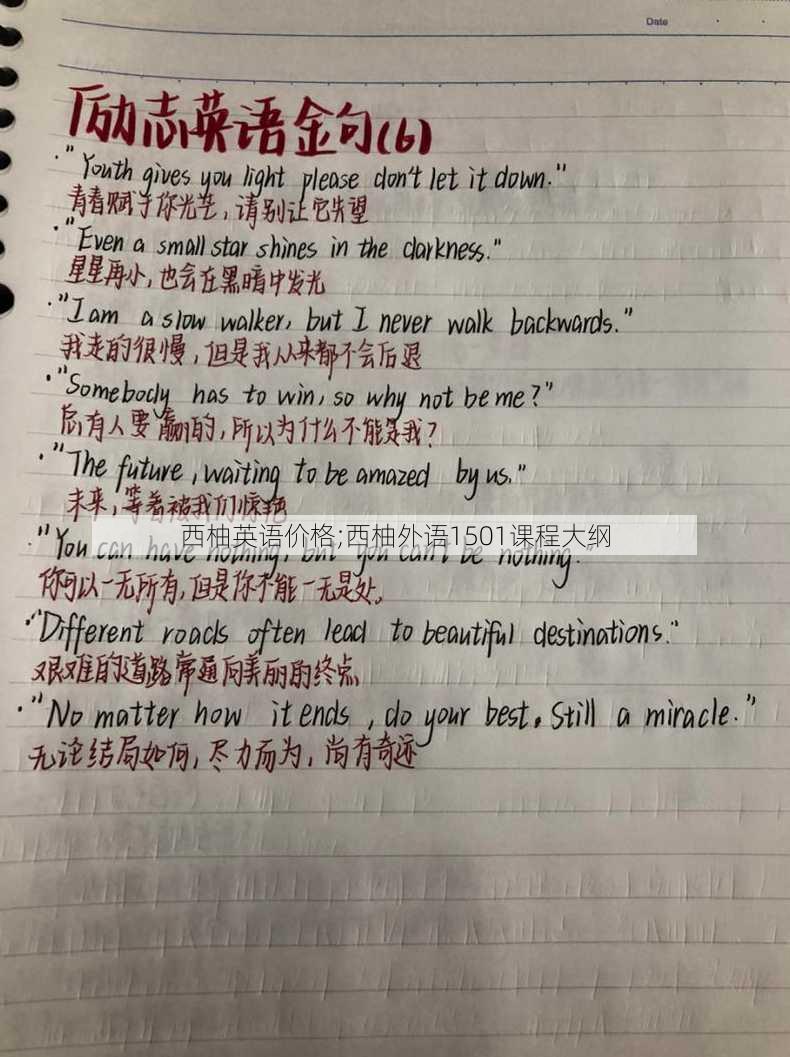 Date
励志英语金句(6)
·"Youth gives you light please don't let it down."
青春赋于你光芒，请别让它失望
·"Even a small star shines in the darkness."
星星再小，也会在黑暗中发光
·"I am a slow walker, but I never walk backwards."
我走的很慢，但是我从来都不会后退
·"Somebody has to win, so why not be me?"
总有人要赢的，所以为什么不能是我？
·"The future, waiting to be amazed by us."
未来，等着被我们惊艳
西柚英语价格;西柚外语1501课程大纲
·"You can have nothing, but you can't be nothing."
你可以一无所有，但是你不能一无是处。
·"Different roads often lead to beautiful destinations."
艰难的道路常通向美丽的终点
·"No matter how it ends, do your best. Still a miracle."
无论结局如何，尽力而为，尚有奇迹